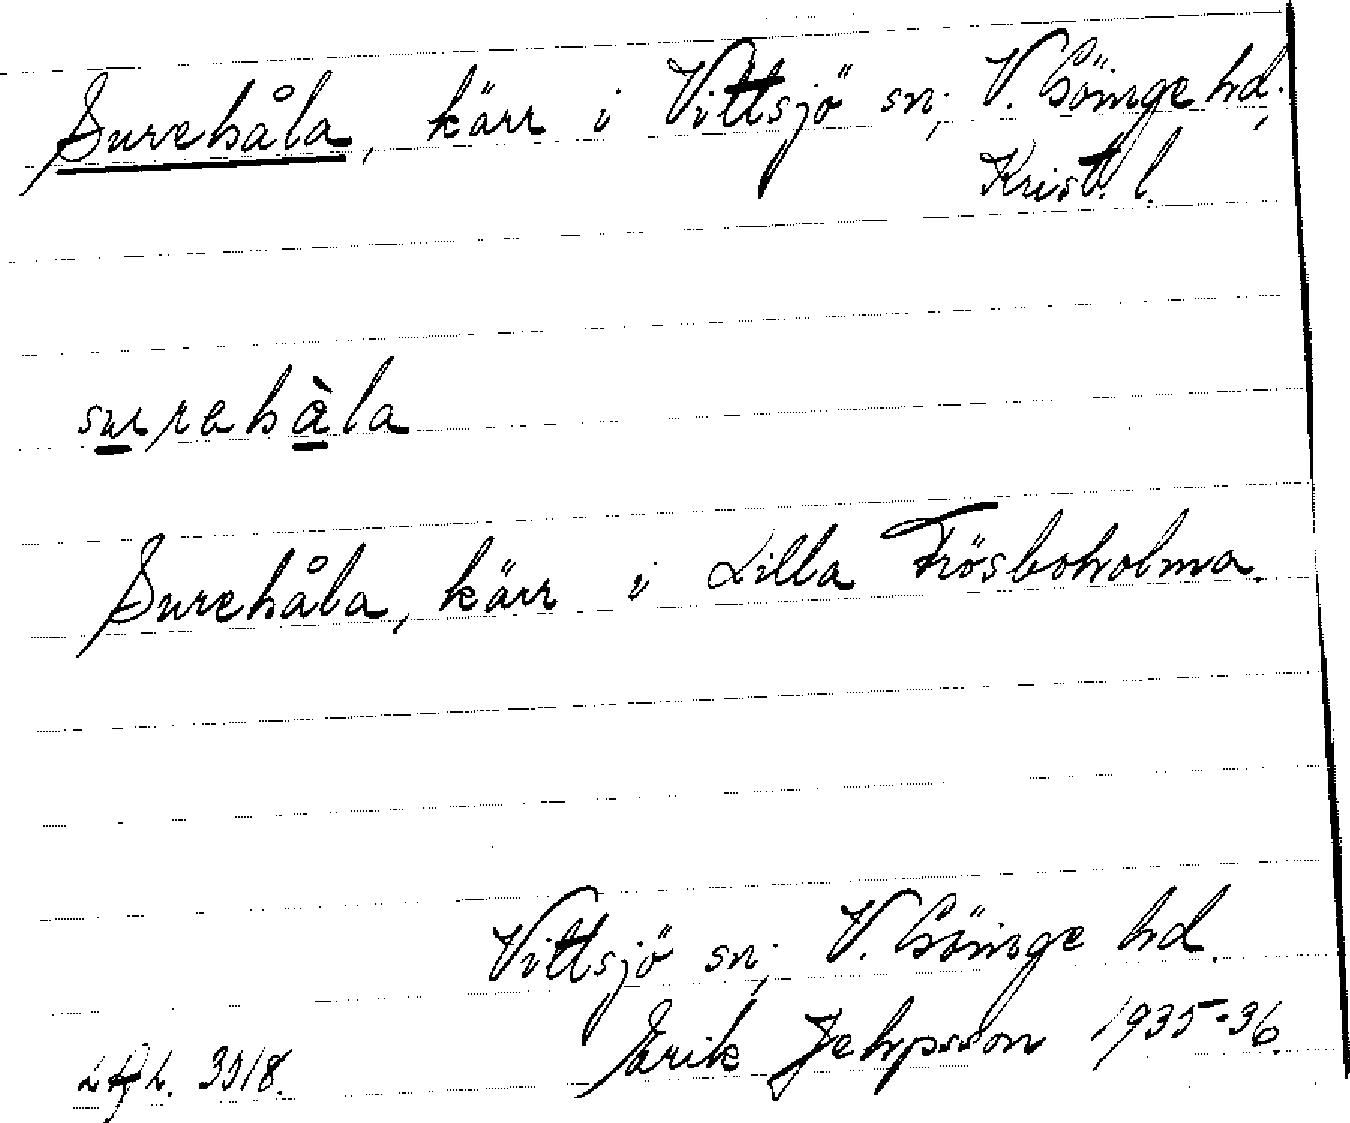 Surehåla, kärr i Vittsjö sn, V. Göinge hd.,
Krist. l.
surahàla
Surehåla, kärr i Lilla Frösboholma.
Vittsjö sn, V. Göinge hd.
Erik Jeppsson 1935-36.